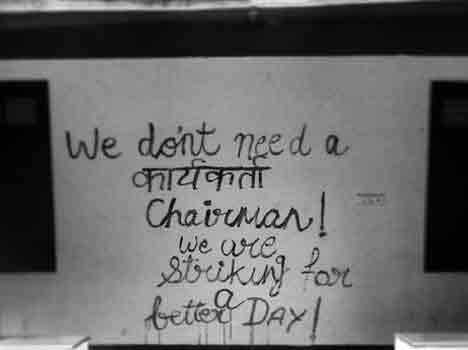 We don't need a
कार्यकर्ता
Chairman!
We are
striking for
a
better DAY!